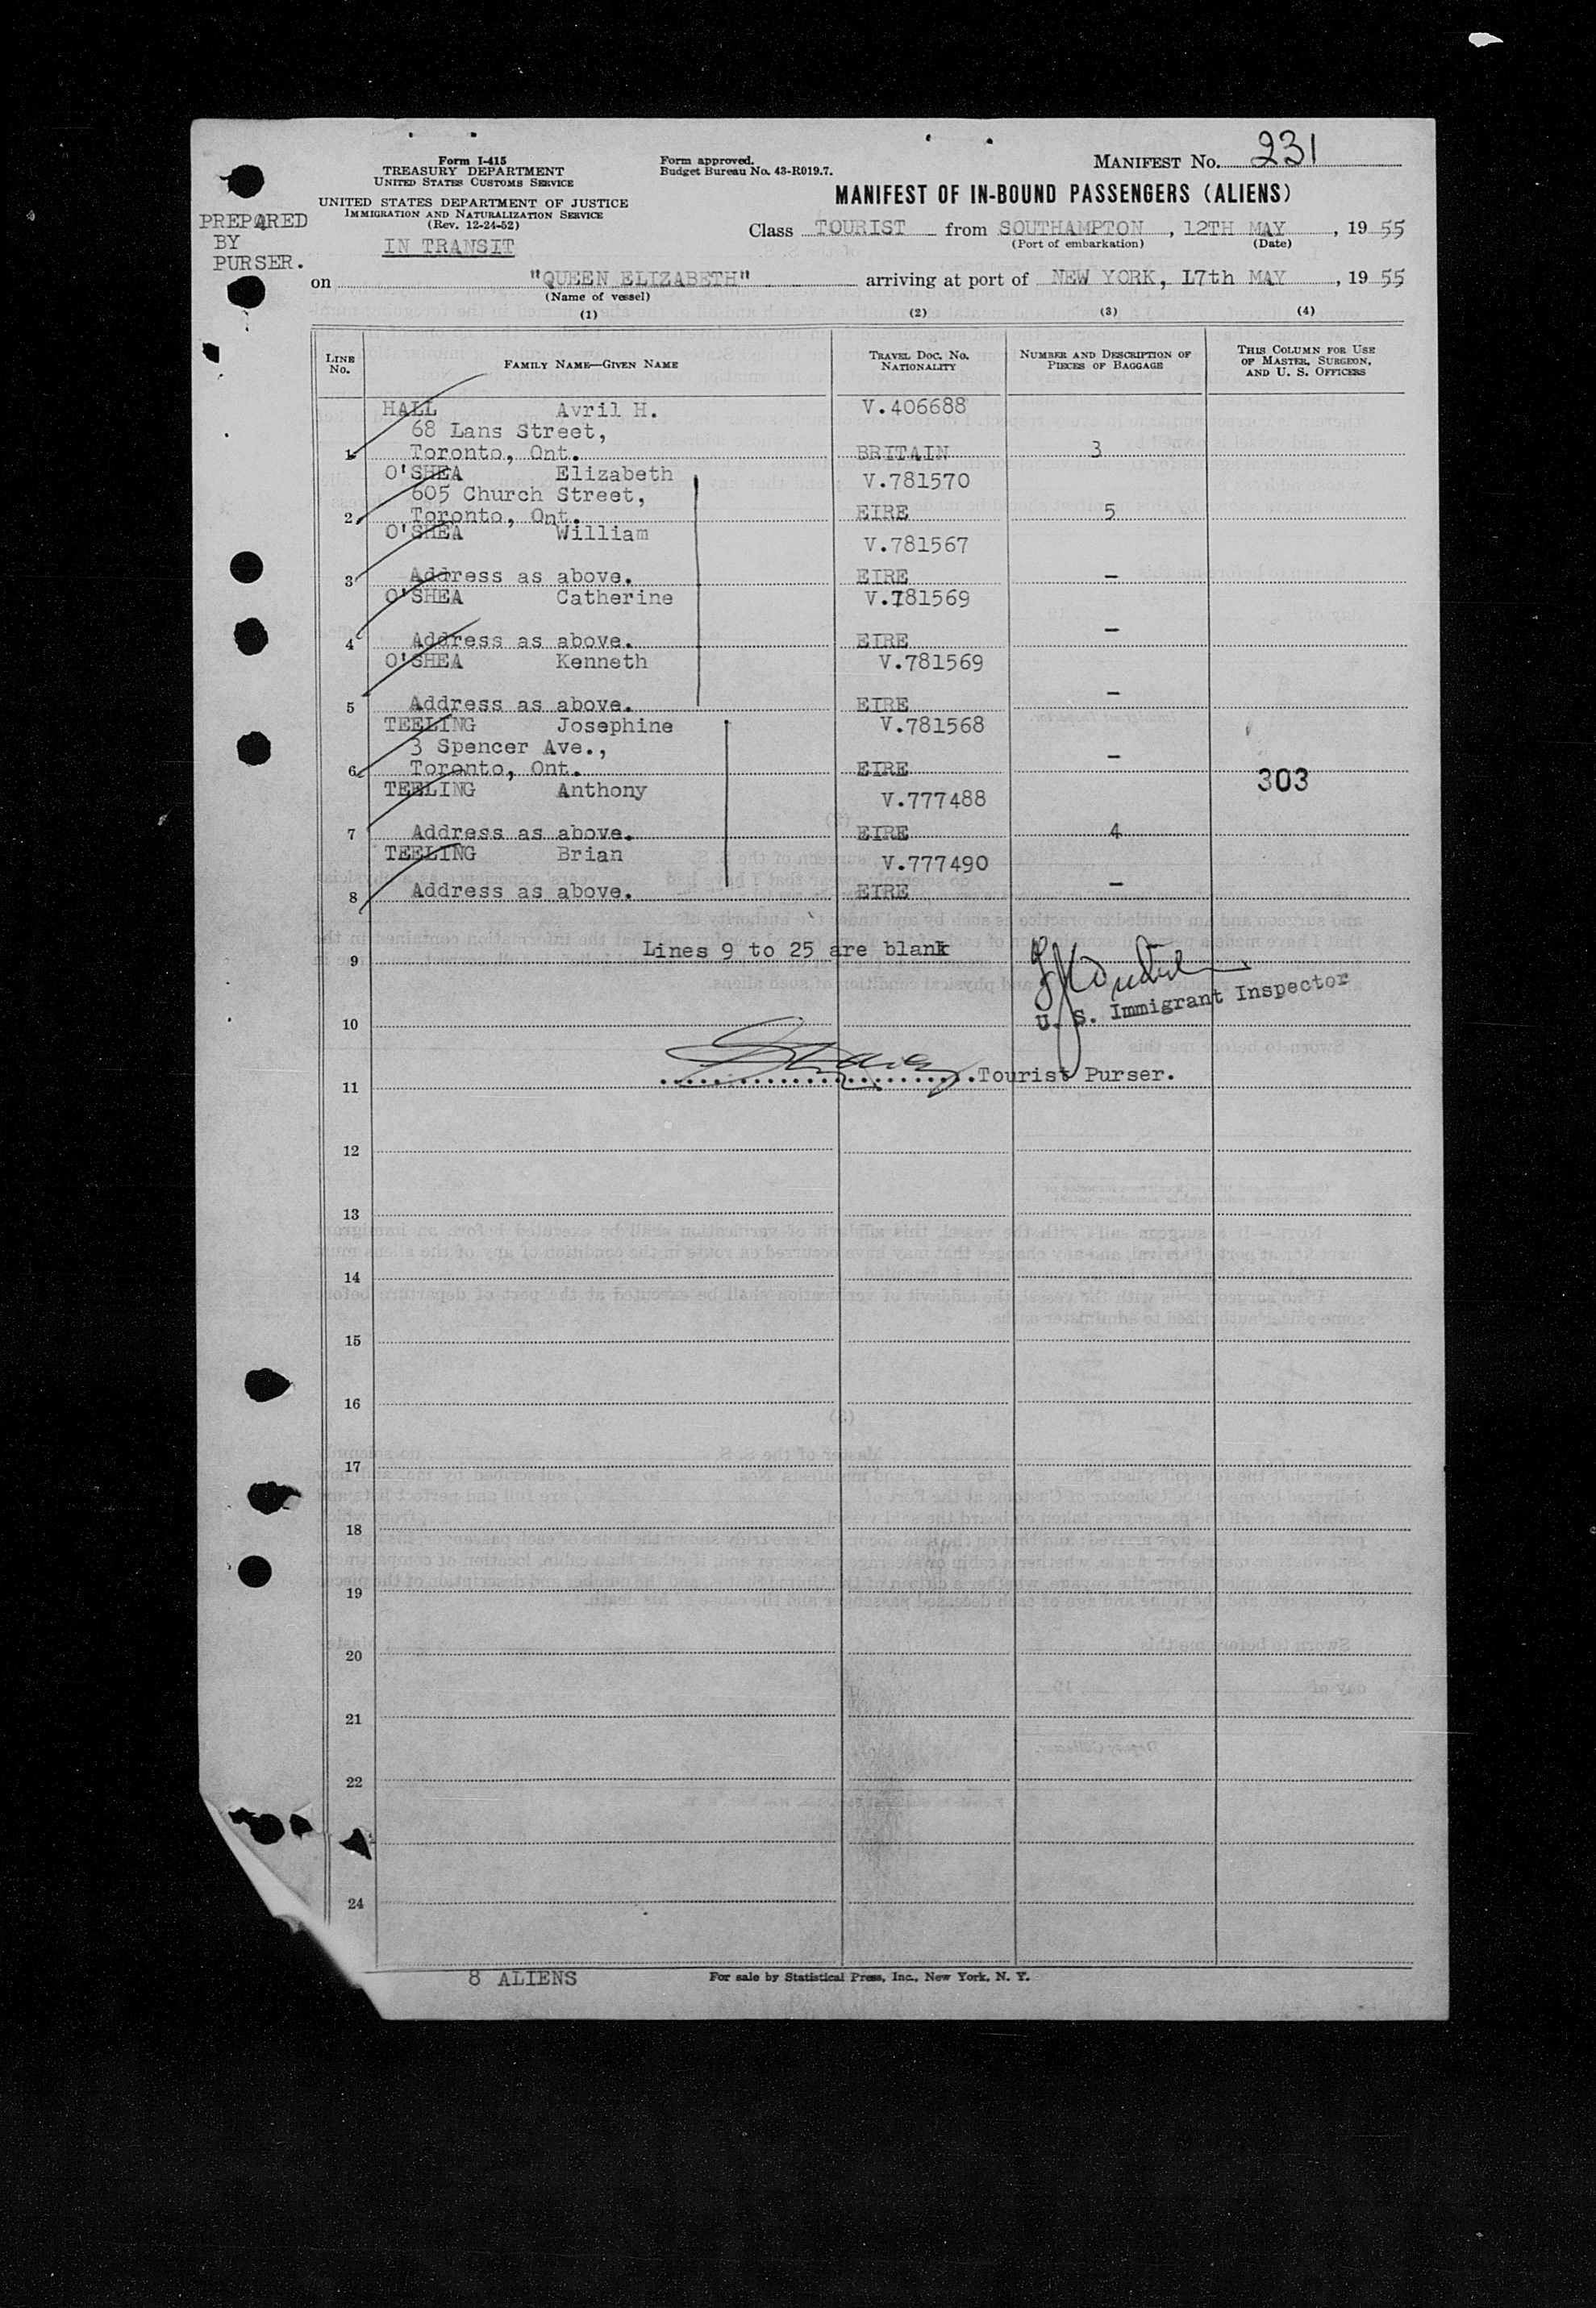 Form I-415
TREASURY DEPARTMENT
UNITED STATES CUSTOMS SERVICE
UNITED STATES DEPARTMENT OF JUSTICE
IMMIGRATION AND NATURALIZATION SERVICE
(Rev. 12-24-52)
IN TRANSIT
Form approved.
Budget Bureau No. 43-R019.7.
MANIFEST NO. 231
MANIFEST OF IN-BOUND PASSENGERS (ALIENS)
PREPARED
BY
PURSER.
Class TOURIST from SOUTHAMPTON, 12TH MAY, 19 55
(Port of embarkation) (Date)
on "QUEEN ELIZABETH" arriving at port of NEW YORK, 17th MAY, 19 55
(Name of vessel)
(1) (2) (3) (4)
LINE NO. FAMILY NAME—GIVEN NAME TRAVEL DOC. NO. NATIONALITY NUMBER AND DESCRIPTION OF PIECES OF BAGGAGE THIS COLUMN FOR USE OF MASTER, SURGEON, AND U. S. OFFICERS
HALL Avril H. V.406688
68 Lans Street,
1 Toronto, Ont. BRITAIN 3
O'SHEA Elizabeth V.781570
605 Church Street,
2 Toronto, Ont. EIRE 5
O'SHEA William V.781567
3 Address as above. EIRE –
O'SHEA Catherine V.781569
4 Address as above. EIRE –
O'SHEA Kenneth V.781569
5 Address as above. EIRE –
TEELING Josephine V.781568
3 Spencer Ave.,
6 Toronto, Ont. EIRE –
303
TEELING Anthony V.777488
7 Address as above. EIRE 4
TEELING Brian V.777490
8 Address as above. EIRE –
Lines 9 to 25 are blank
9
U. S. Immigrant Inspector
10
Tourist Purser.
11
12
13
14
15
16
17
18
19
20
21
22
24
8 ALIENS For sale by Statistical Press, Inc., New York, N. Y.